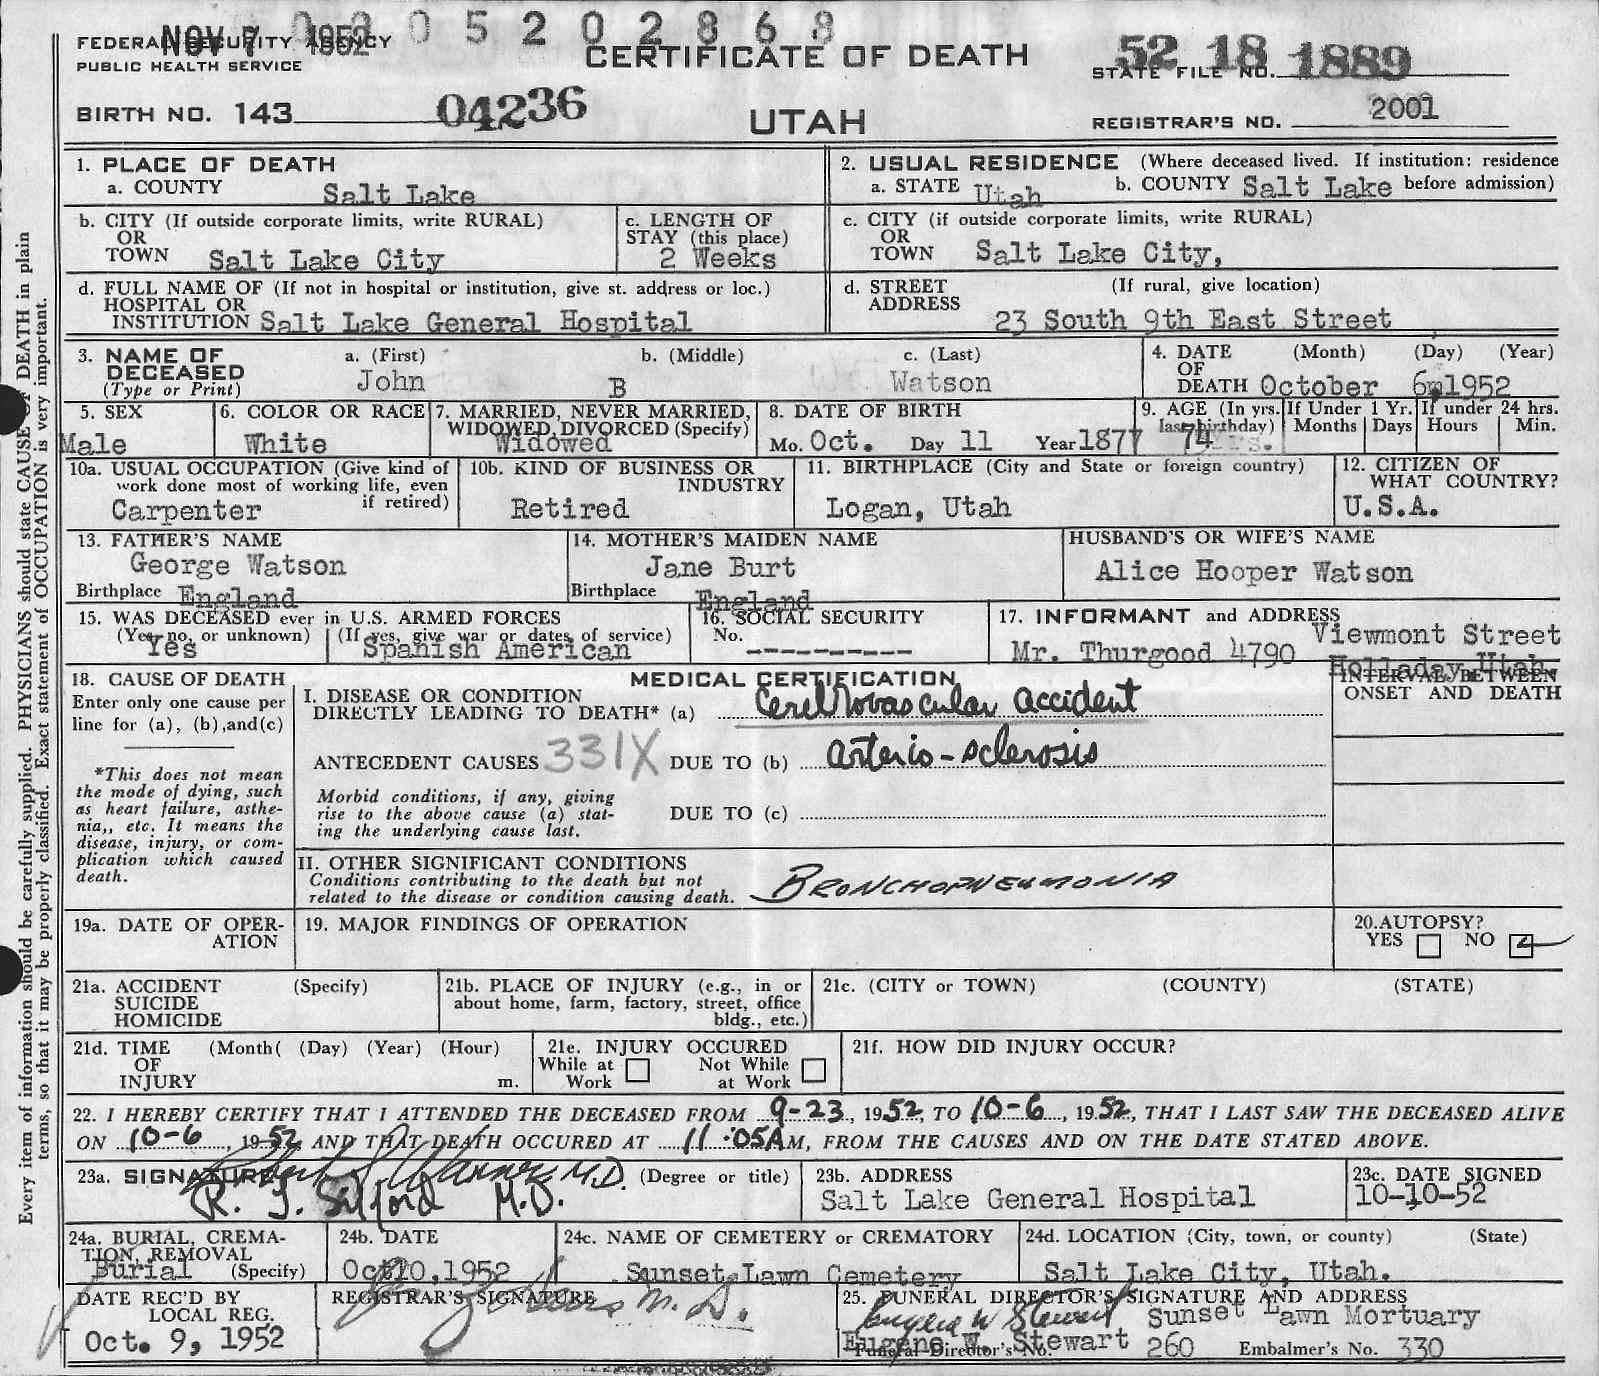 NOV 7 1952 0 3 0 5 2 0 2 8 6 8
FEDERAL SECURITY AGENCY
PUBLIC HEALTH SERVICE
CERTIFICATE OF DEATH
STATE FILE NO. 52 18 1889
BIRTH NO. 143 04236
UTAH
REGISTRAR'S NO. 2001
1. PLACE OF DEATH
a. COUNTY Salt Lake
2. USUAL RESIDENCE (Where deceased lived. If institution: residence
a. STATE Utah b. COUNTY Salt Lake before admission)
b. CITY (If outside corporate limits, write RURAL)
OR
TOWN Salt Lake City
c. LENGTH OF
STAY (this place)
2 Weeks
c. CITY (if outside corporate limits, write RURAL)
OR
TOWN Salt Lake City,
d. FULL NAME OF (If not in hospital or institution, give st. address or loc.)
HOSPITAL OR
INSTITUTION Salt Lake General Hospital
d. STREET (If rural, give location)
ADDRESS
23 South 9th East Street
3. NAME OF a. (First) b. (Middle) c. (Last)
DECEASED
(Type or Print) John B Watson
4. DATE (Month) (Day) (Year)
OF
DEATH October 6, 1952
5. SEX
Male
6. COLOR OR RACE
White
7. MARRIED, NEVER MARRIED,
WIDOWED, DIVORCED (Specify)
Widowed
8. DATE OF BIRTH
Mo. Oct. Day 11 Year 1877
9. AGE (In yrs.
last birthday)
74 Yrs.
If Under 1 Yr.
Months Days
If under 24 hrs.
Hours Min.
10a. USUAL OCCUPATION (Give kind of
work done most of working life, even
if retired)
Carpenter
10b. KIND OF BUSINESS OR
INDUSTRY
Retired
11. BIRTHPLACE (City and State or foreign country)
Logan, Utah
12. CITIZEN OF
WHAT COUNTRY?
U.S.A.
13. FATHER'S NAME
George Watson
Birthplace England
14. MOTHER'S MAIDEN NAME
Jane Burt
Birthplace England
HUSBAND'S OR WIFE'S NAME
Alice Hooper Watson
15. WAS DECEASED ever in U.S. ARMED FORCES
(Yes, no, or unknown) (If yes, give war or dates of service)
Yes Spanish American
16. SOCIAL SECURITY
No.
----------
17. INFORMANT and ADDRESS
Mr. Thurgood 4790 Viewmont Street
Holladay Utah
18. CAUSE OF DEATH
Enter only one cause per
line for (a), (b), and (c)
*This does not mean
the mode of dying, such
as heart failure, asthe-
nia,, etc. It means the
disease, injury, or com-
plication which caused
death.
MEDICAL CERTIFICATION
INTERVAL BETWEEN
ONSET AND DEATH
I. DISEASE OR CONDITION
DIRECTLY LEADING TO DEATH* (a) Cerebrovascular accident
ANTECEDENT CAUSES 331X DUE TO (b) arterio-sclerosis
Morbid conditions, if any, giving
rise to the above cause (a) stat-
ing the underlying cause last.
DUE TO (c)
II. OTHER SIGNIFICANT CONDITIONS
Conditions contributing to the death but not
related to the disease or condition causing death.
BRONCHOPNEUMONIA
19a. DATE OF OPER-
ATION
19. MAJOR FINDINGS OF OPERATION
20. AUTOPSY?
YES NO
21a. ACCIDENT (Specify)
SUICIDE
HOMICIDE
21b. PLACE OF INJURY (e.g., in or
about home, farm, factory, street, office
bldg., etc.)
21c. (CITY or TOWN) (COUNTY) (STATE)
21d. TIME (Month( (Day) (Year) (Hour)
OF
INJURY m.
21e. INJURY OCCURED
While at Work Not While at Work
21f. HOW DID INJURY OCCUR?
22. I HEREBY CERTIFY THAT I ATTENDED THE DECEASED FROM 9-23, 1952, TO 10-6, 1952, THAT I LAST SAW THE DECEASED ALIVE
ON 10-6, 1952 AND THAT DEATH OCCURED AT 11:05 AM, FROM THE CAUSES AND ON THE DATE STATED ABOVE.
23a. SIGNATURE M.D. (Degree or title)
R. M.D.
23b. ADDRESS
Salt Lake General Hospital
23c. DATE SIGNED
10-10-52
24a. BURIAL, CREMA-
TION, REMOVAL
Burial (Specify)
24b. DATE
Oct 10, 1952
24c. NAME OF CEMETERY OR CREMATORY
Sunset Lawn Cemetery
24d. LOCATION (City, town, or county) (State)
Salt Lake City, Utah.
DATE REC'D BY
LOCAL REG.
Oct. 9, 1952
REGISTRAR'S SIGNATURE
M.D.
25. FUNERAL DIRECTOR'S SIGNATURE AND ADDRESS
Eugene W Stewart Sunset Lawn Mortuary
Eugene W. Stewart
Funeral Director's No. 260 Embalmer's No. 330
Every item of information should be carefully supplied. PHYSICIANS should state CAUSE OF DEATH in plain
terms, so that it may be properly classified. Exact statement of OCCUPATION is very important.